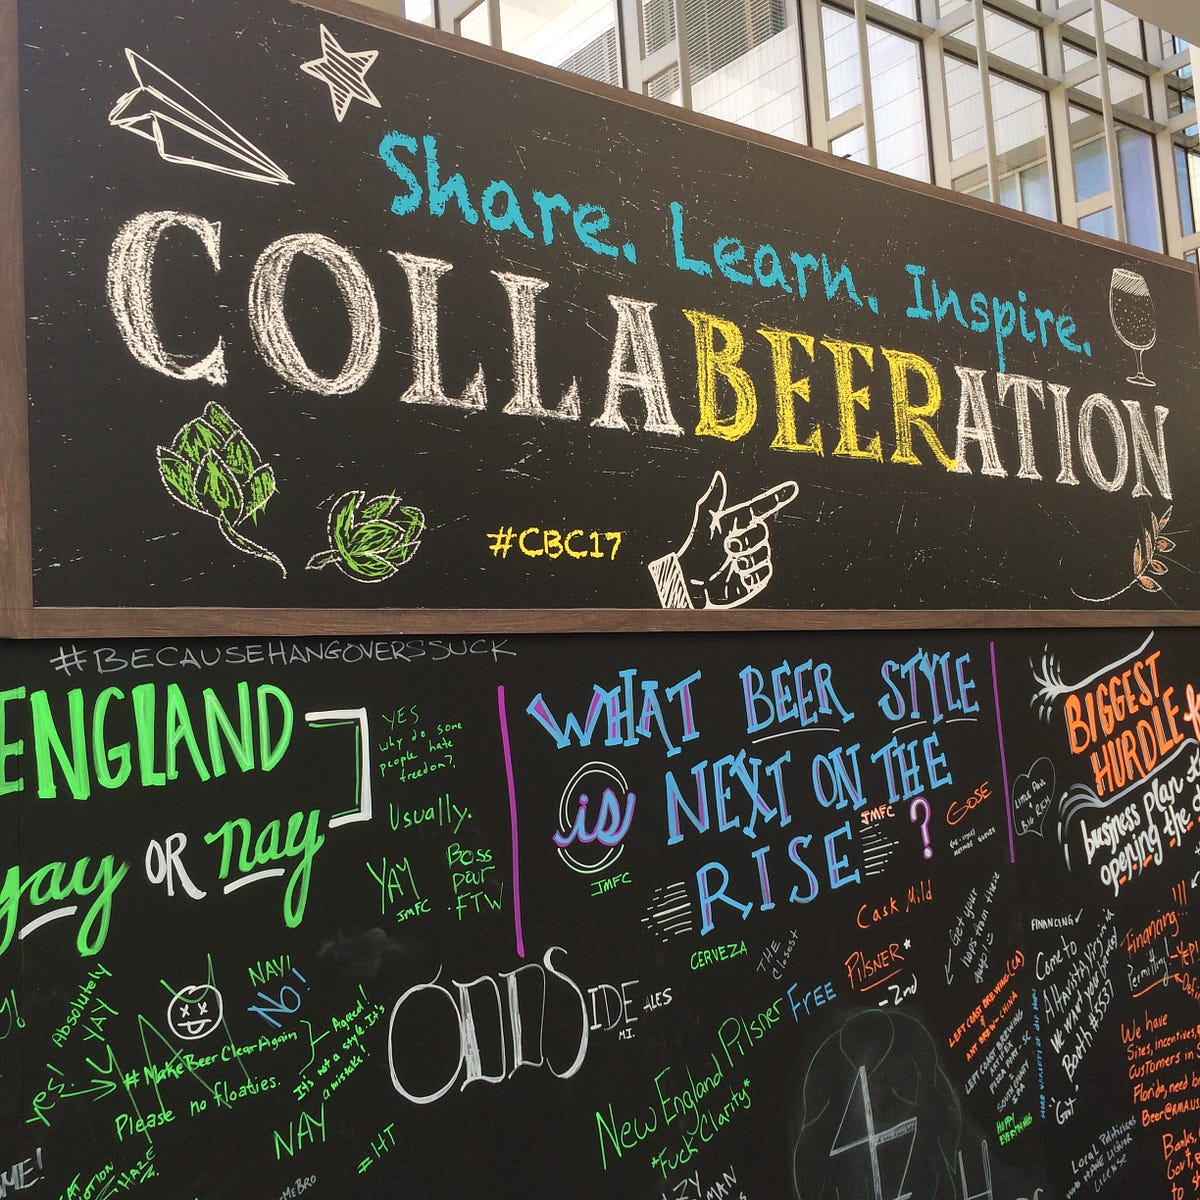 Share. Learn. Inspire.
COLLABEERATION
#CBC17
#BECAUSEHANGOVERSSUCK
ENGLAND
yay OR nay
YES
why do some
people hate
freedom?.
Usually.
YAY
JMFC
BOSS
pour
FTW
Absolutely
YAY
yes!
NAY!
No!
#MakeBeerClearAgain
Please no floaties.
Agreed!
It's not a style. It's
a mistake!
NAY
#IHT
HAZE
WHAT BEER STYLE
is NEXT ON THE
RISE?
JMFC
JMFC
GOSE
Cask Mild
CERVEZA
THE
Closest
PILSNER*
-2nd
Free
ODDSIDE ALES
MI.
New England Pilsner
*Fuck Clarity*
Get your
hops on these
guys
BIGGEST
HURDLE
business plan
opening the
FINANCING
Come to
Altavista, Virginia
WE WANT YOU here
Booth #5537
LEFT COAST BREWING (CA)
&
ART BREW-CHINA
LEFT COAST BREWING
HOPPY
EVERYTHING
Financing!!!
Permitting
-YEP!
We have
Sites, incentives,
Customers in
Florida, need b
Beer@RMA.us
Local Politicians
AND
LICENSE
Banks,
Gov't